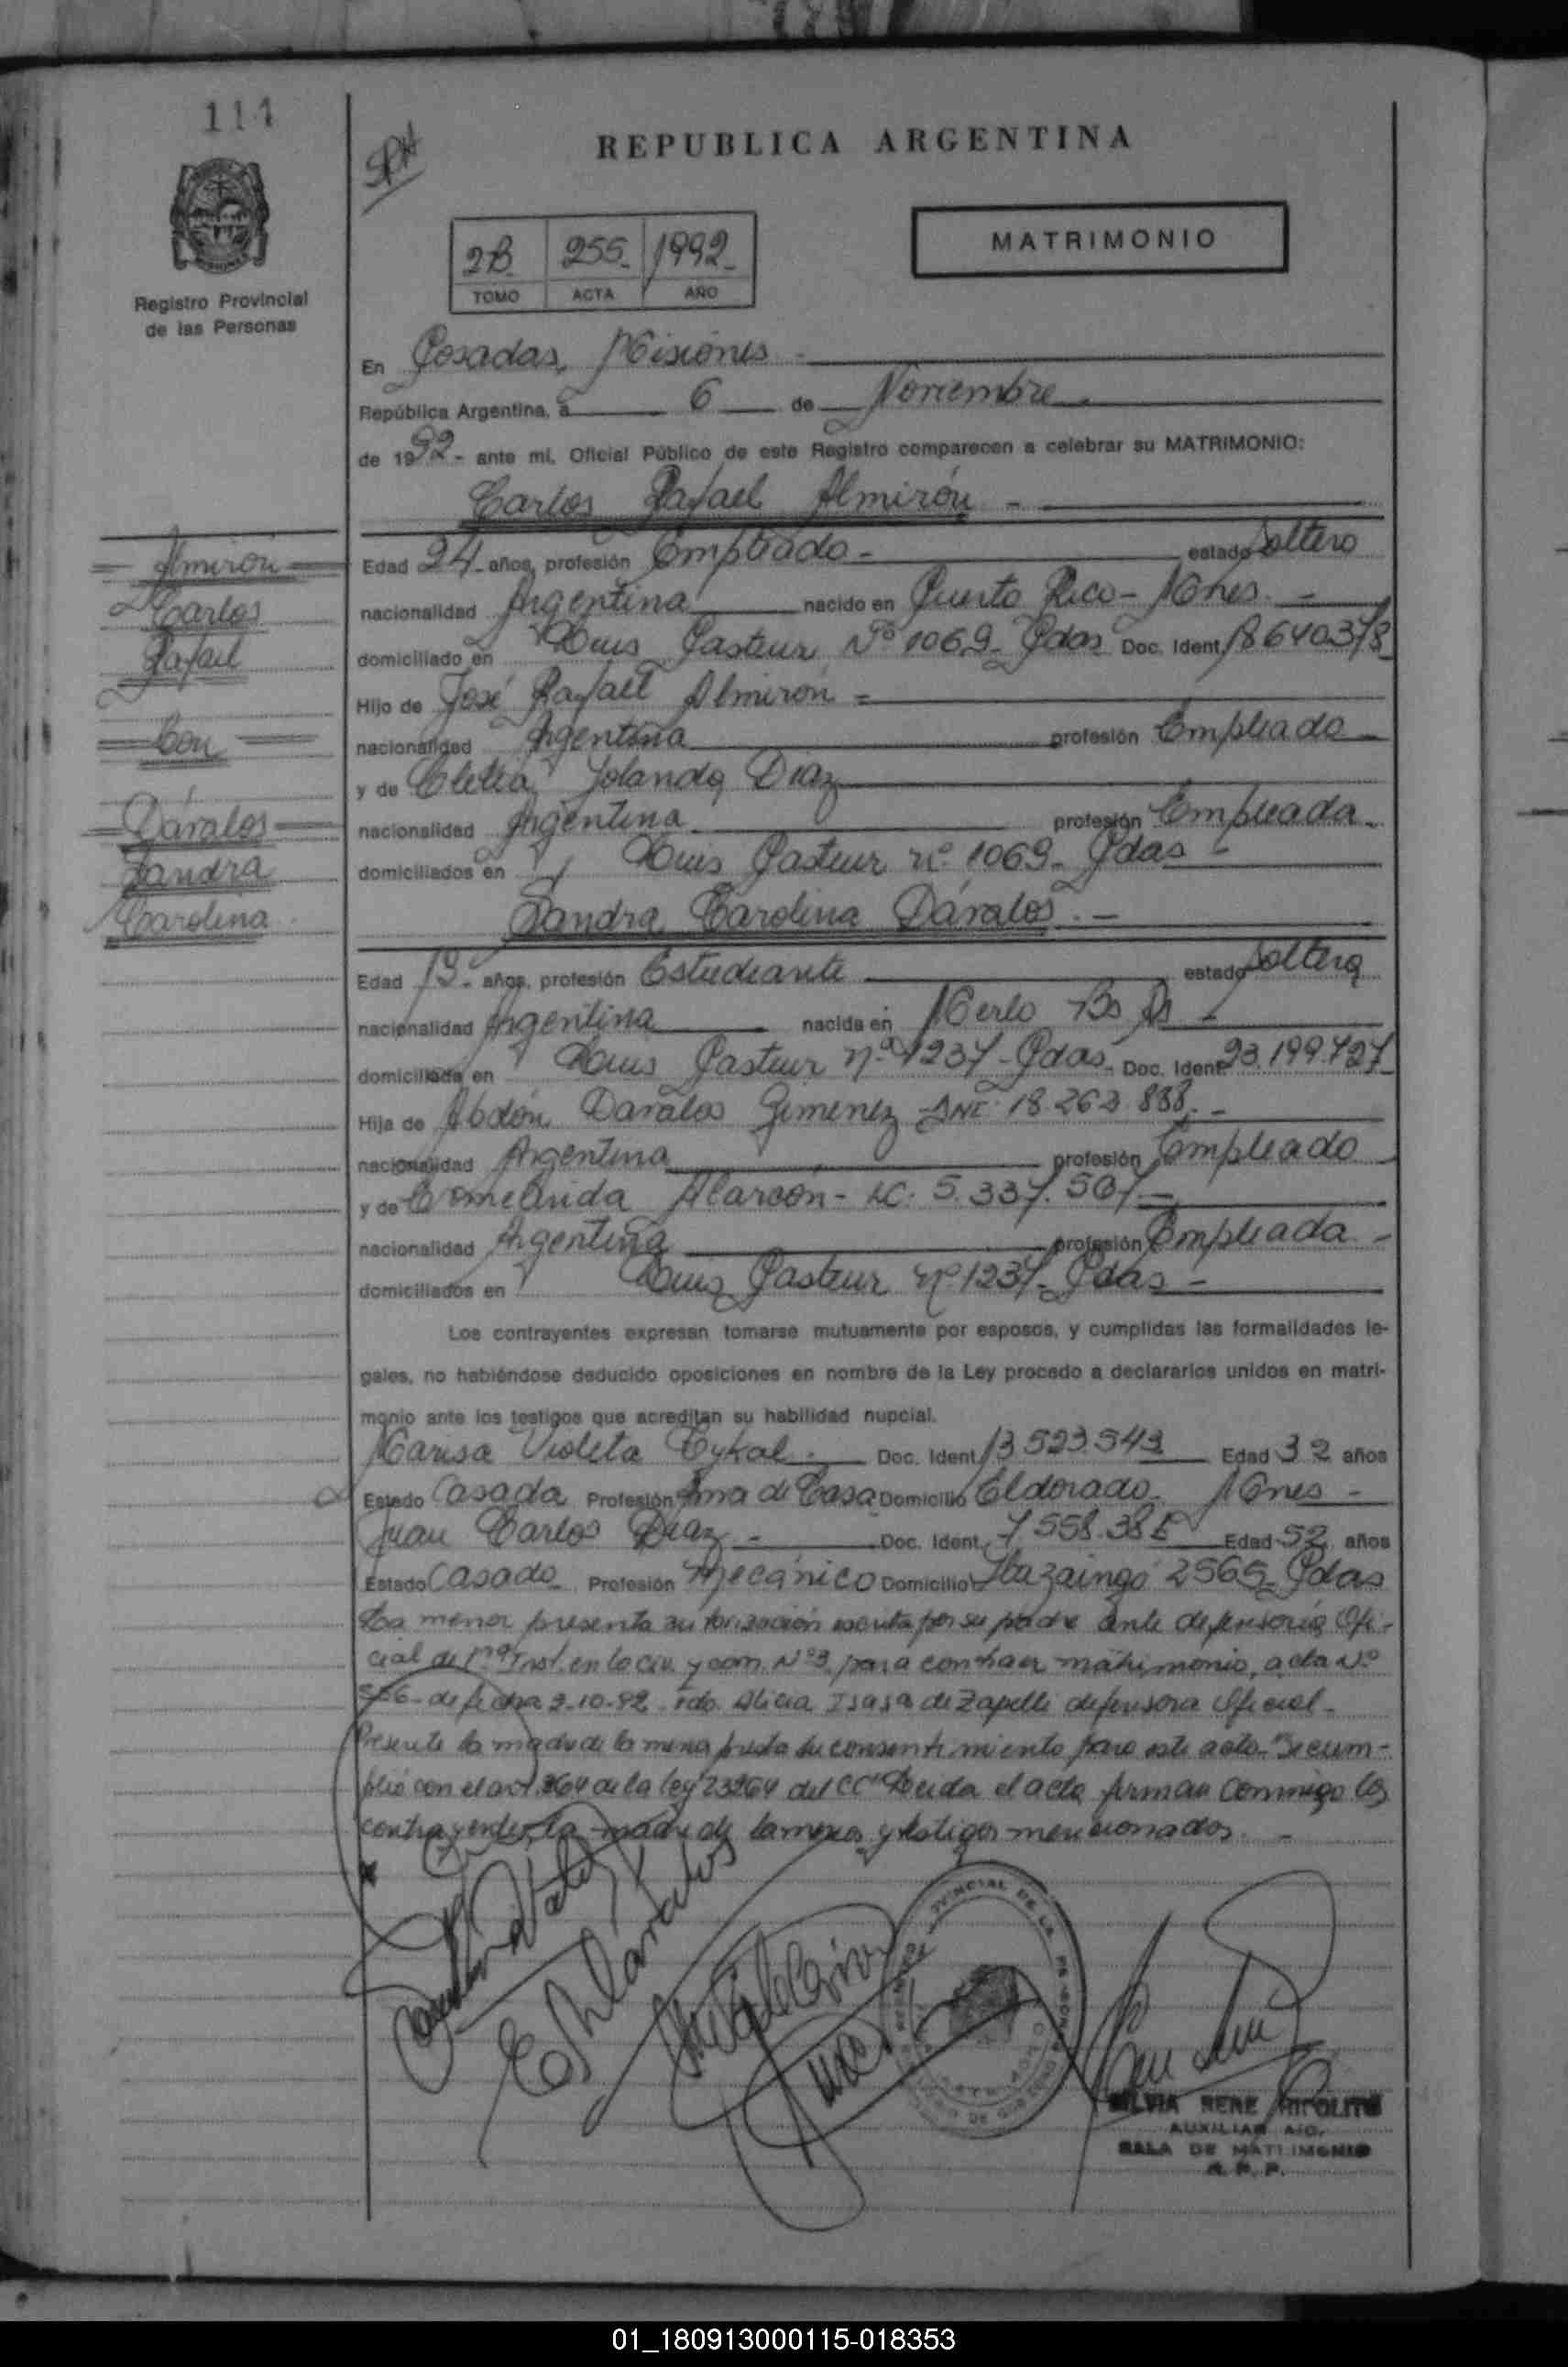 111
SPH
REPUBLICA ARGENTINA
2B 255 1992
TOMO ACTA AÑO
MATRIMONIO
Registro Provincial
de las Personas
En Posadas, Misiones
República Argentina, a 6 de Noviembre
de 1992 - ante mi, Oficial Público de este Registro comparecen a celebrar su MATRIMONIO:
Carlos Rafael Almirón
Almirón
Carlos
Rafael
Con
Dávalos
Sandra
Carolina
Edad 24 años, profesión Empleado - estado Soltero
nacionalidad Argentina nacido en Puerto Rico - Mnes.
domiciliado en Luis Pasteur Nº 1069 - Pdas Doc. Ident. 18640378
Hijo de José Rafael Almirón
nacionalidad Argentina profesión Empleado
y de Yolanda Díaz
nacionalidad Argentina profesión Empleada
domiciliados en Luis Pasteur nº 1069 - Pdas
Sandra Carolina Dávalos
Edad años, profesión Estudiante estado Soltera
nacionalidad Argentina nacida en Merlo Bs As
domiciliada en Luis Pasteur nº 1237 - Pdas. Doc. Ident. 23.199.727
Hija de Abdón Davalos Gimenez - DNI: 18.263.888
nacionalidad Argentina profesión Empleado
y de Ermelinda Alarcón - LC: 5.337.507
nacionalidad Argentina profesión Empleada
domiciliados en Luis Pasteur nº 1237 - Pdas
Los contrayentes expresan tomarse mutuamente por esposos, y cumplidas las formalidades le-
gales, no habiéndose deducido oposiciones en nombre de la Ley procedo a declararlos unidos en matri-
monio ante los testigos que acreditan su habilidad nupcial.
Marisa Violeta Doc. Ident. 13.523.543 Edad 32 años
Estado Casada Profesión Ama de Casa Domicilio Eldorado - Mnes
Juan Carlos Díaz Doc. Ident. Edad 52 años
Estado Casado Profesión Mecánico Domicilio Ituzaingó 2565 - Pdas
La menor presenta autorización escrita por su padre ante defensoría Ofi-
cial de 1ra Inst. en lo civ. y com. Nº 3 para contraer matrimonio, acta Nº
de fecha 9-10-92 - fdo. Alicia Isasa de Zapelli defensora Oficial -
Presente la madre de la menor presta su consentimiento para este acto - Se cum-
plió con el art. 264 de la ley 23264 del CC Leida el acta firman conmigo los
contrayentes, la madre de la menor y testigos mencionados.
SILVIA RENE HIPOLITO
AUXILIAR
SALA DE MATRIMONIO
R. P. P.
01_180913000115-018353